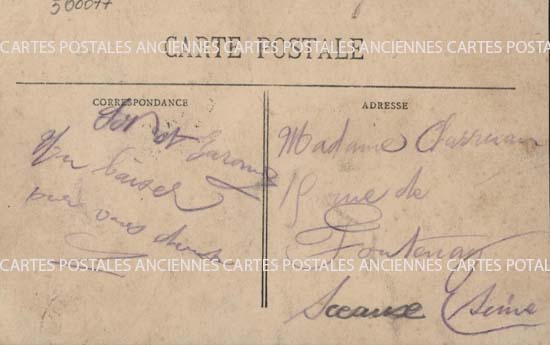 300077
CARTE POSTALE
CARTES POSTALES ANCIENNES CARTES POSTALES ANCIENNES CARTES POSTALES
CORRESPONDANCE
Lot et Garonne
Un baiser
pour vous
ADRESSE
Madame
rue de
Fontenay
Sceaux (Seine
CARTES POSTALES ANCIENNES CARTES POSTALES ANCIENNES CARTES POSTALES